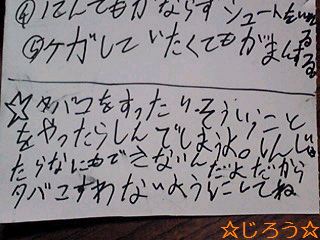 ④1てんでもかならずシュートをいれる
⑤ケガしていたくてもがまんする
☆タバコをすったりそういうこと
をやったらしんでしまうよ。しんじゃ
たらなにもできないんだよだから
タバコすわないようにしてね
☆じろう☆